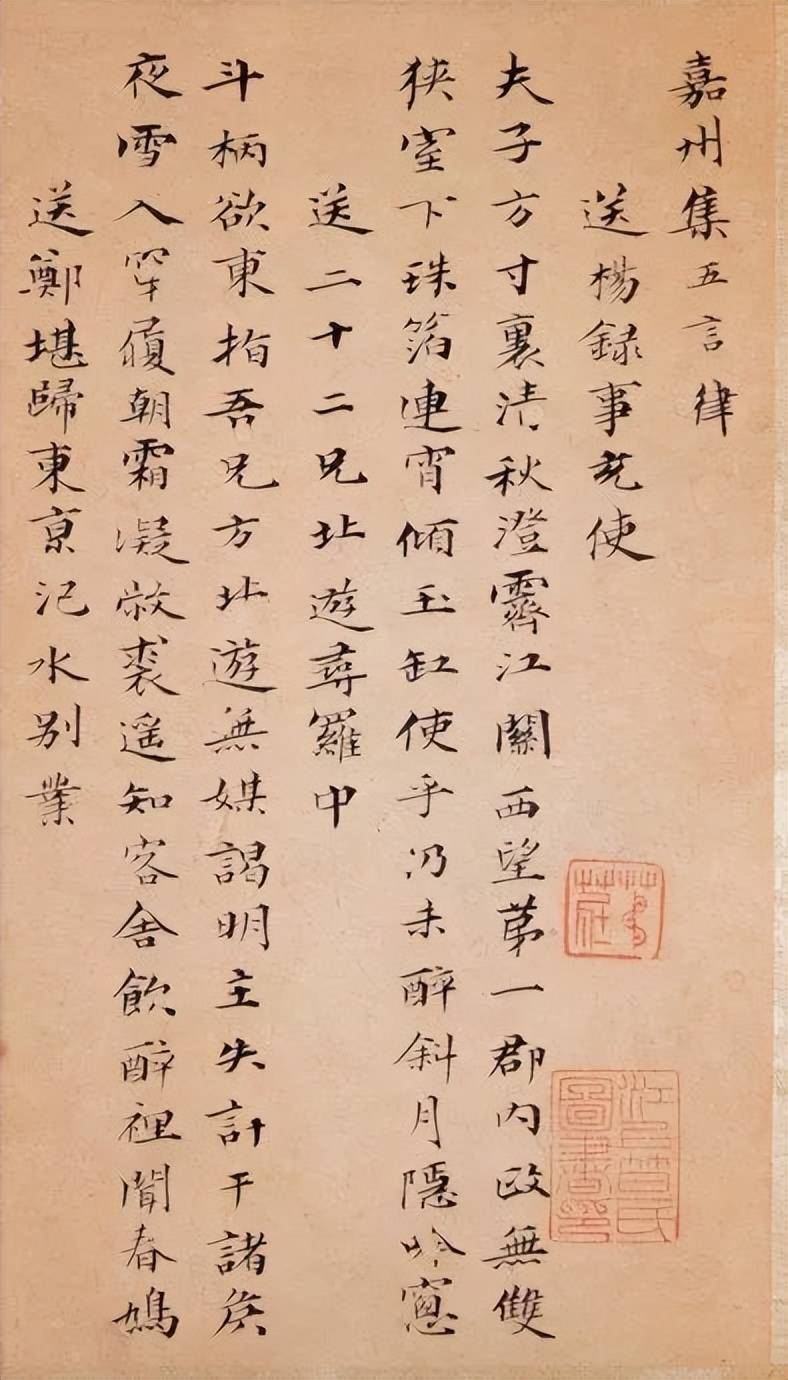 嘉州集五言律
送楊錄事充使
夫子方寸裏清秋澄霽江關西望第一郡內政無雙
狹室下珠箔連宵傾玉缸使乎仍未醉斜月隱吟窓
送二十二兄北遊尋羅中
斗柄欲東指吾兄方北遊無媒謁明主失計干諸侯
夜雪入穿履朝霜凝敝裘遥知客舍飲醉裡聞春鳩
送鄭堪歸東京汜水別業
江上笪氏圖書印